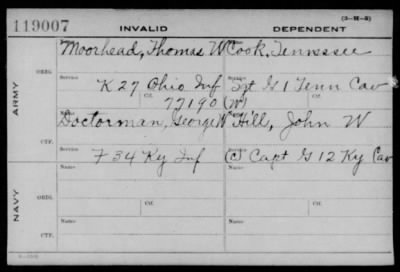 (3-H-5)
119007 INVALID DEPENDENT
Name Name
Moorhead, Thomas W Cook, Tennessee
ARMY
ORIG.
Service Service
K 27 Ohio Inf Sgt G 1 Tenn Cav
Ctf. Ctf.
77190 (W)
Doctorman, George W Hill, John W
CTF.
Service Service
F 34 Ky Inf (C) Capt G 12 Ky Cav
NAVY
Name Name
ORIG.
Ctf. Ctf.
Name Name
CTF.